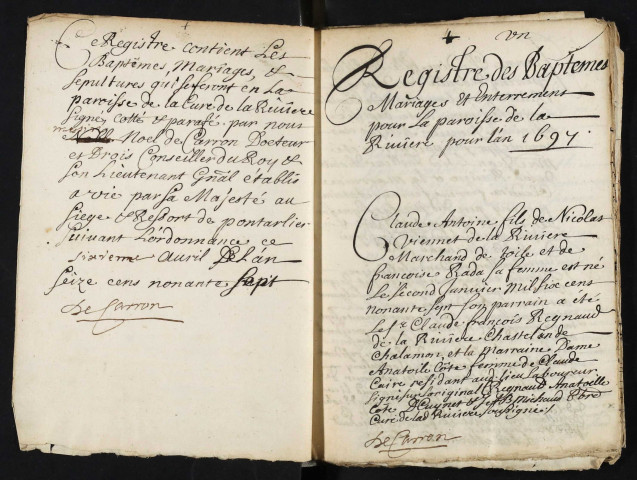 Ce Registre contient Les
Baptêmes, Mariages, &
sepultures qui se feront en La
paroisse de la Cure de la Riviere
signé Cotté et parafé par nous
Noel de Carron Docteur
et Drois Conseiller du Roy &
son Lieutenant Gnãl établis
a vie par sa Majesté au
siege & Ressort de pontarlier
suivant L'ordonnance ce
sixieme avril de L'an
seize cens nonante sept
De Carron
un
Registre des Baptemes
Mariages et Enterrement
pour La paroisse de la
Riviere pour L'an 1697.
Claude Antoine fils de Nicolas
Viennet de la Riviere
Marchand de toile et de
francoise Rada sa femme est né
Le second Janvier Mil six cens
nonante sept son parrain a été
Le Sr. Claude francois Reynaud
de la Riviere Chastelan de
Chalamon, et la Marraine Dame
Anatoile Cote femme de Claude
Caire residant aud. lieu Laboureur
signe sur L'original C Reynaud Anatoille
Cote Michaud Pbre
Curé de la Riviere soussigné
De Carron